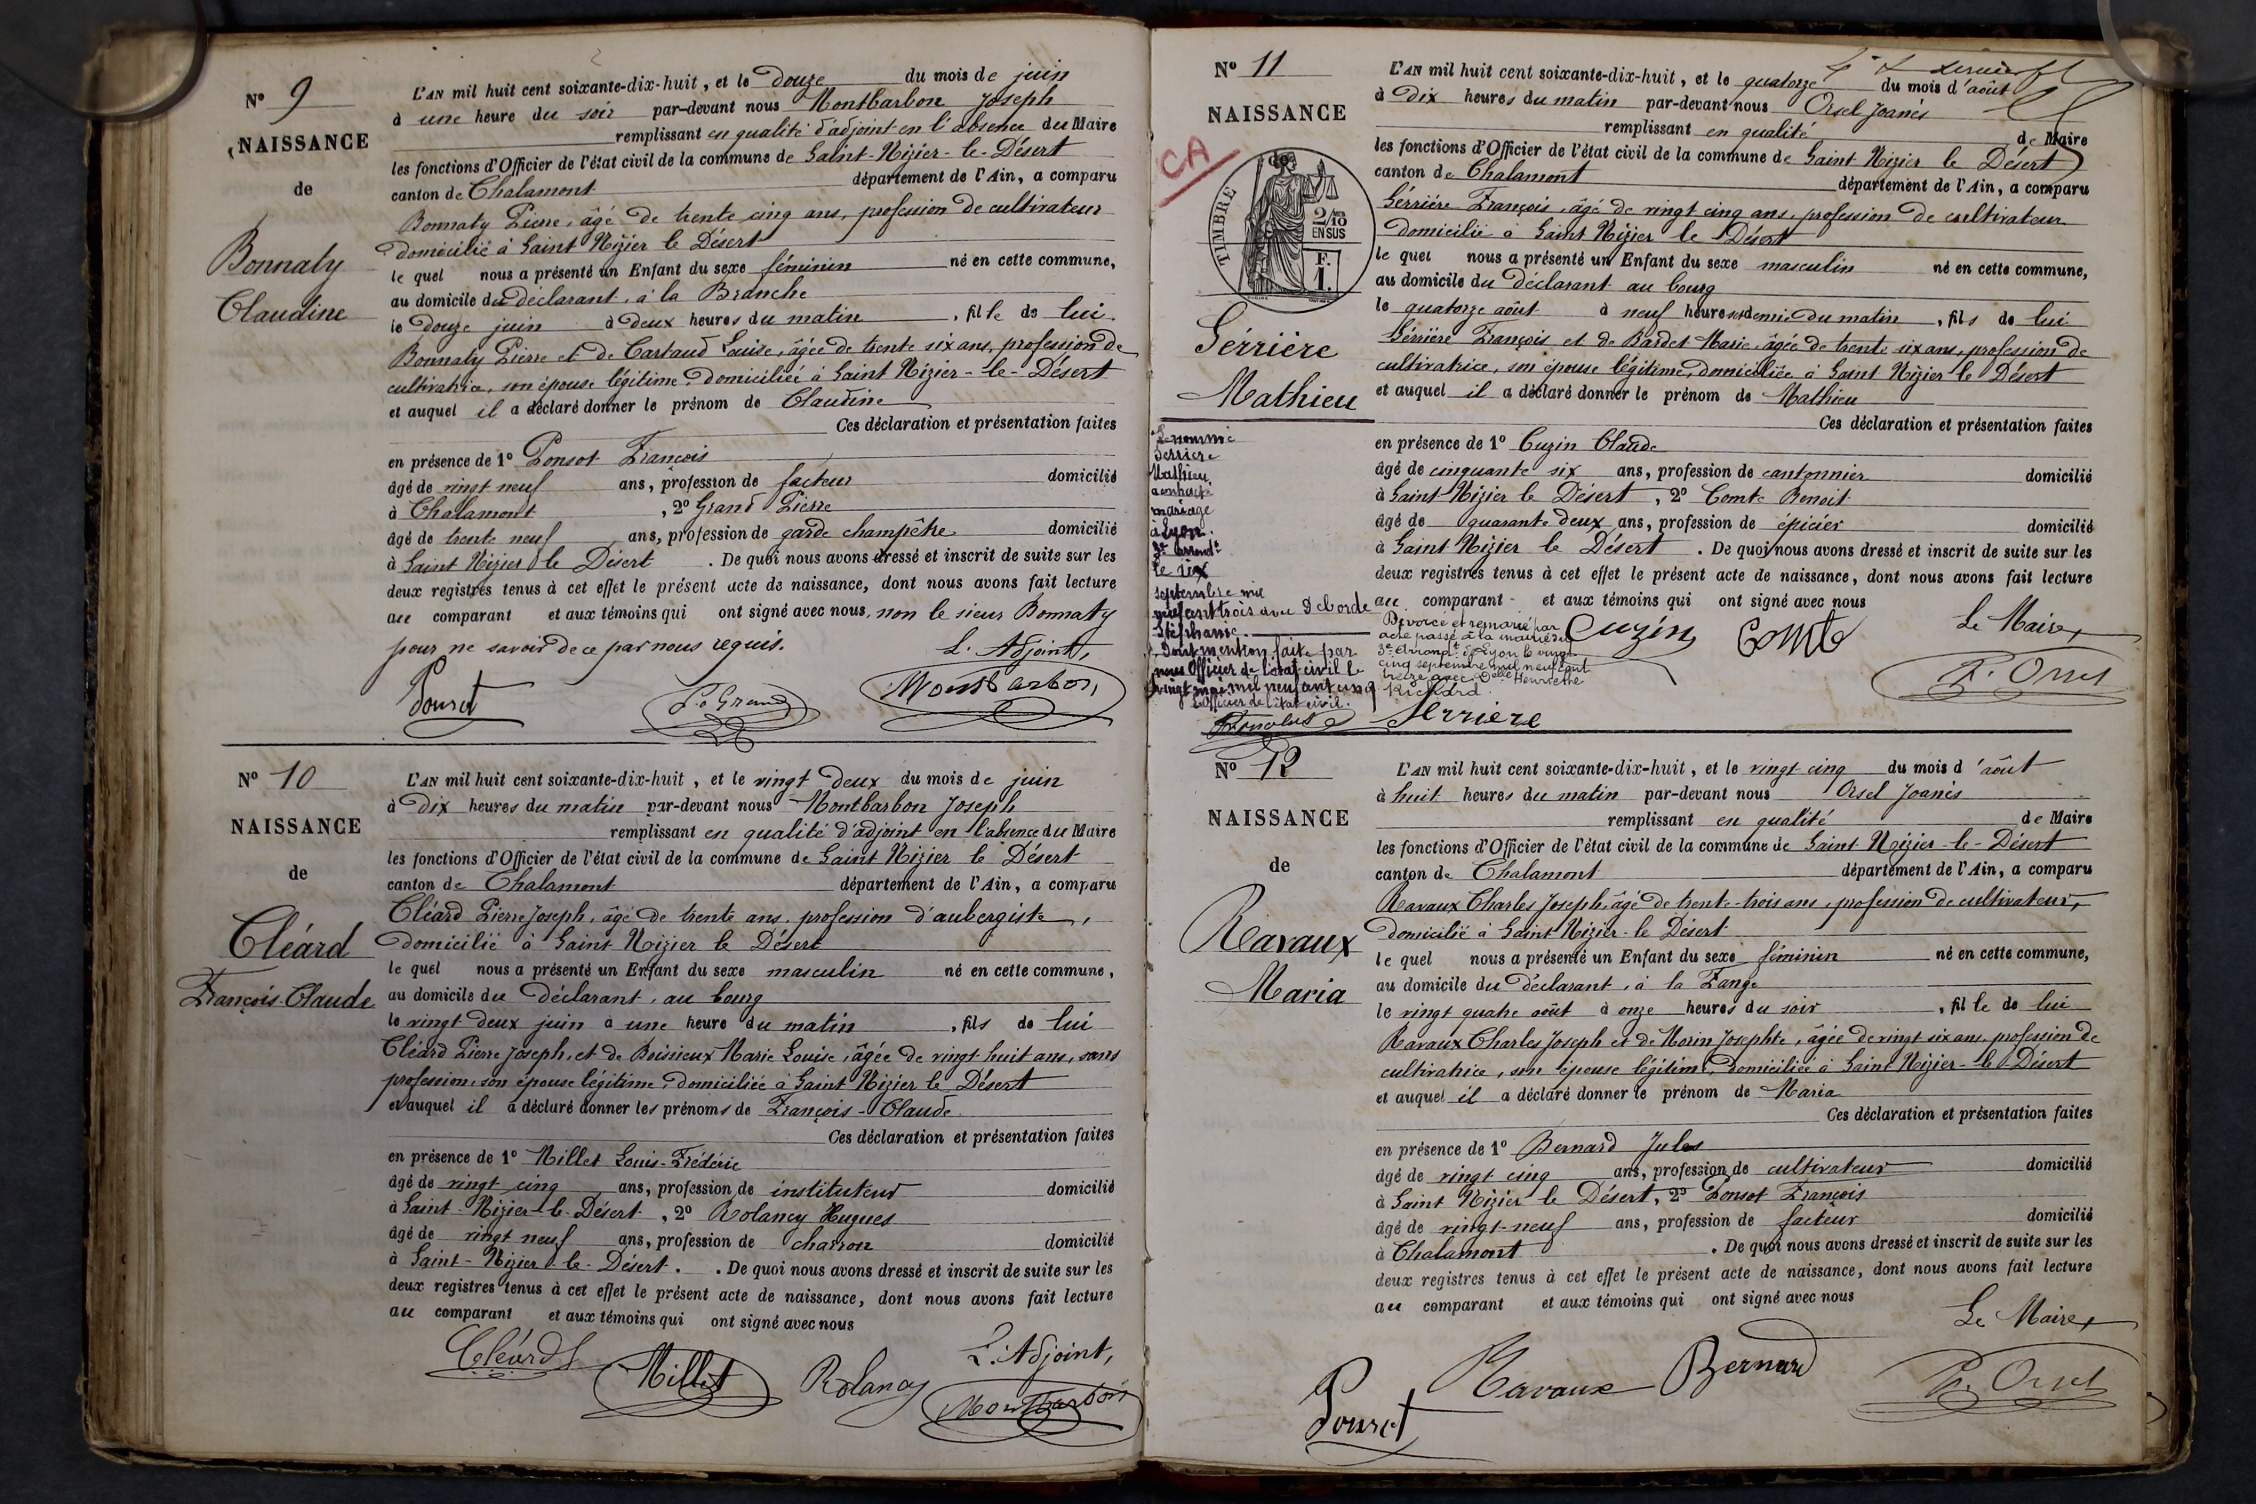 Nº 9
NAISSANCE
de
Bonnaty
Claudine
L'AN mil huit cent soixante-dix-huit, et le douze du mois de juin
à une heure du soir par-devant nous Montbarbon Joseph
remplissant en qualité d'adjoint en l'absence du Maire
les fonctions d'Officier de l'état civil de la commune de Saint-Nizier-le-Désert
canton de Chalamont département de l'Ain, a comparu
Bonnaty Pierre, âgé de trente cinq ans, profession de cultivateur
domicilié à Saint Nizier le Désert
le quel nous a présenté un Enfant du sexe féminin né en cette commune,
au domicile du déclarant, à la Branche
le douze juin à deux heures du matin, fille de lui
Bonnaty Pierre et de Cartaud Louise, âgée de trente six ans, profession de
cultivatrice, son épouse légitime, domiciliée à Saint Nizier-le-Désert
et auquel il a déclaré donner le prénom de Claudine
Ces déclaration et présentation faites
en présence de 1º Ponsot François
âgé de vingt neuf ans, profession de facteur domicilié
à Chalamont, 2º Grand Pierre
âgé de trente neuf ans, profession de garde champêtre domicilié
à Saint Nizier le Désert. De quoi nous avons dressé et inscrit de suite sur les
deux registres tenus à cet effet le présent acte de naissance, dont nous avons fait lecture
au comparant et aux témoins qui ont signé avec nous, non le sieur Bonnaty
pour ne savoir de ce par nous requis.
L'Adjoint,
Ponsot P. Grand Montbarbon
Nº 10
NAISSANCE
de
Cléard
François-Claude
L'AN mil huit cent soixante-dix-huit, et le vingt deux du mois de juin
à dix heures du matin par-devant nous Montbarbon Joseph
remplissant en qualité d'adjoint en l'absence du Maire
les fonctions d'Officier de l'état civil de la commune de Saint Nizier le Désert
canton de Chalamont département de l'Ain, a comparu
Cléard Pierre Joseph, âgé de trente ans, profession d'aubergiste,
domicilié à Saint Nizier le Désert
le quel nous a présenté un Enfant du sexe masculin né en cette commune,
au domicile du déclarant, au bourg
le vingt deux juin à une heure du matin, fils de lui
Cléard Pierre Joseph, et de Boisieux Marie Louise, âgée de vingt huit ans, sans
profession, son épouse légitime, domiciliée à Saint Nizier le Désert
et auquel il a déclaré donner les prénoms de François-Claude
Ces déclaration et présentation faites
en présence de 1º Millet Louis-Frédéric
âgé de vingt cinq ans, profession de instituteur domicilié
à Saint-Nizier-le-Désert, 2º Rolancy Hugues
âgé de vingt neuf ans, profession de charron domicilié
à Saint-Nizier-le-Désert. De quoi nous avons dressé et inscrit de suite sur les
deux registres tenus à cet effet le présent acte de naissance, dont nous avons fait lecture
au comparant et aux témoins qui ont signé avec nous
L'Adjoint,
Cléard Millet Rolancy Montbarbon
Nº 11
NAISSANCE
de
CA
TIMBRE
2/10
EN SUS
F.
1.
Serrière
Mathieu
L'AN mil huit cent soixante-dix-huit, et le quatorze du mois d'août
à dix heures du matin par-devant nous Orsel Joanès
remplissant en qualité de Maire
les fonctions d'Officier de l'état civil de la commune de Saint Nizier le Désert
canton de Chalamont département de l'Ain, a comparu
Serrière François, âgé de vingt cinq ans, profession de cultivateur
domicilié à Saint Nizier le Désert
le quel nous a présenté un Enfant du sexe masculin né en cette commune,
au domicile du déclarant au bourg
le quatorze août à neuf heures et demie du matin, fils de lui
Serrière François et de Bardet Marie, âgée de trente six ans, profession de
cultivatrice, son épouse légitime, domiciliée à Saint Nizier le Désert
et auquel il a déclaré donner le prénom de Mathieu
Ces déclaration et présentation faites
en présence de 1º Cuzin Claude
âgé de cinquante six ans, profession de cantonnier domicilié
à Saint Nizier le Désert, 2º Comte Benoit
âgé de quarante deux ans, profession de épicier domicilié
à Saint Nizier le Désert. De quoi nous avons dressé et inscrit de suite sur les
deux registres tenus à cet effet le présent acte de naissance, dont nous avons fait lecture
au comparant et aux témoins qui ont signé avec nous
Le nommé
Serrière
Mathieu
a contracté
mariage
à Lyon
3e arrondt
le six
septembre mil
neuf cent trois avec Deborde
Stéphanie.
Dont mention faite par
nous Officier de l'état civil le
vingt mai mil neuf cent cinq
L'Officier de l'état civil.
Divorcé et remarié par
acte passé à la mairie du
3e Arrondt de Lyon le vingt
cinq septembre mil neuf cent
treize avec Delle Henriette
Richard.
Le Maire
Cuzin Comte P. Orsel
Serrière
Nº 12
NAISSANCE
de
Ravaux
Maria
L'AN mil huit cent soixante-dix-huit, et le vingt cinq du mois d'août
à huit heures du matin par-devant nous Orsel Joanès
remplissant en qualité de Maire
les fonctions d'Officier de l'état civil de la commune de Saint Nizier-le-Désert
canton de Chalamont département de l'Ain, a comparu
Ravaux Charles Joseph, âgé de trente-trois ans, profession de cultivateur,
domicilié à Saint Nizier-le Désert
le quel nous a présenté un Enfant du sexe féminin né en cette commune,
au domicile du déclarant, à la Fange
le vingt quatre août à onze heures du soir, fille de lui
Ravaux Charles Joseph et de Morin Josephte, âgée de vingt six ans, profession de
cultivatrice, son épouse légitime, domiciliée à Saint Nizier-le-Désert
et auquel il a déclaré donner le prénom de Maria
Ces déclaration et présentation faites
en présence de 1º Bernard Jules
âgé de vingt cinq ans, profession de cultivateur domicilié
à Saint Nizier le Désert, 2º Ponsot François
âgé de vingt-neuf ans, profession de facteur domicilié
à Chalamont. De quoi nous avons dressé et inscrit de suite sur les
deux registres tenus à cet effet le présent acte de naissance, dont nous avons fait lecture
au comparant et aux témoins qui ont signé avec nous
Le Maire
Ponsot Ravaux Bernard P. Orsel